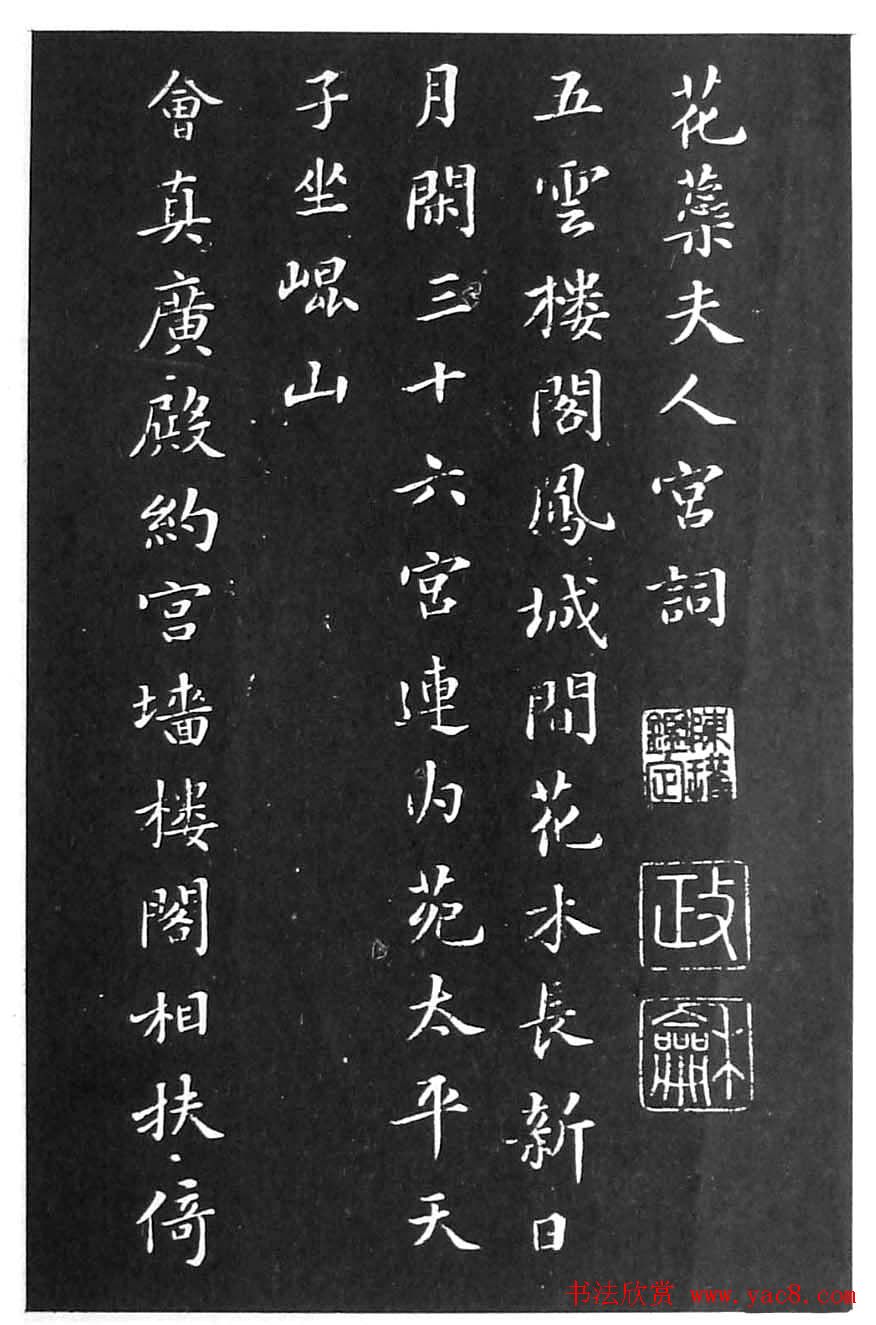 花蘂夫人宮詞
陳瓘鑑定
政
龢
五雲樓閣鳳城間花木長新日
月閑三十六宮連内苑太平天
子坐崐山
會真廣殿約宮墻樓閣相扶倚
书法欣赏 www.yac8.com